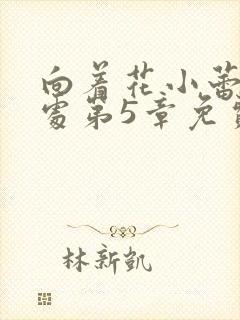 向着花小蕾
处第5章免费
林新凯